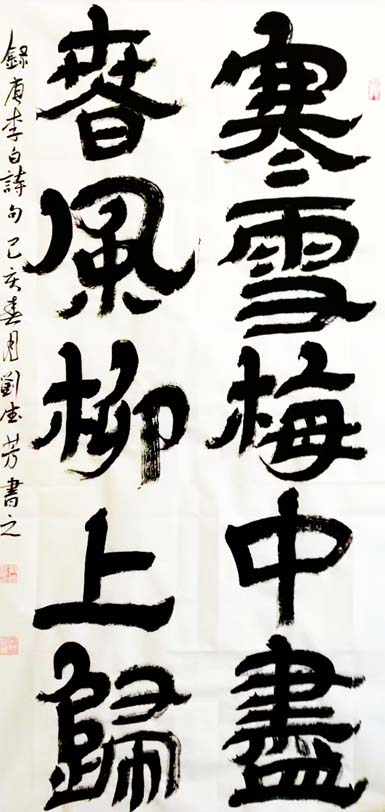 寒雪梅中盡
春風柳上歸
録唐李白詩句己亥春月劉宏芳書之